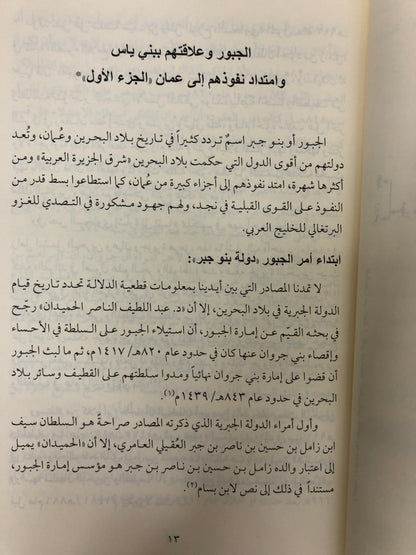 الجبور وعلاقتهم ببني ياس
وامتداد نفوذهم إلى عمان «الجزء الأول»*
الجبور أو بنو جبر اسمٌ تردد كثيراً في تاريخ بلاد البحرين وعُمان، وتُعد
دولتهم من أقوى الدول التي حكمت بلاد البحرين «شرق الجزيرة العربية» ومن
أكثرها شهرة، امتد نفوذهم إلى أجزاء كبيرة من عُمان، كما استطاعوا بسط قدر من
النفوذ على القوى القبلية في نجد، ولهم جهود مشكورة في التصدي للغزو
البرتغالي للخليج العربي.
ابتداء أمر الجبور «دولة بنو جبر»:
لا تمدنا المصادر التي بين أيدينا بمعلومات قطعية الدلالة تحدد تاريخ قيام
الدولة الجبرية في بلاد البحرين، إلا أن «د. عبد اللطيف الناصر الحميدان» رجّح
في بحثه القيّم عن إمارة الجبور، أن استيلاء الجبور على السلطة في الأحساء
وإقصاء بني جروان عنها كان في حدود عام ٨٢٠هـ/ ١٤١٧م، ثم ما لبث الجبور
أن قضوا على إمارة بني جروان نهائياً ومدوا سلطتهم على القطيف وسائر بلاد
البحرين في حدود عام ٨٤٣هـ/ ١٤٣٩م(١).
وأول أمراء الدولة الجبرية الذي ذكرته المصادر صراحةً هو السلطان سيف
ابن زامل بن حسين بن ناصر بن جبر العُقيلي العامري، إلا أن «الحميدان» يميل
إلى اعتبار والده زامل بن حسين بن ناصر بن جبر هو مؤسس إمارة الجبور،
مستنداً في ذلك إلى نص لابن بسام(٢).
١٣